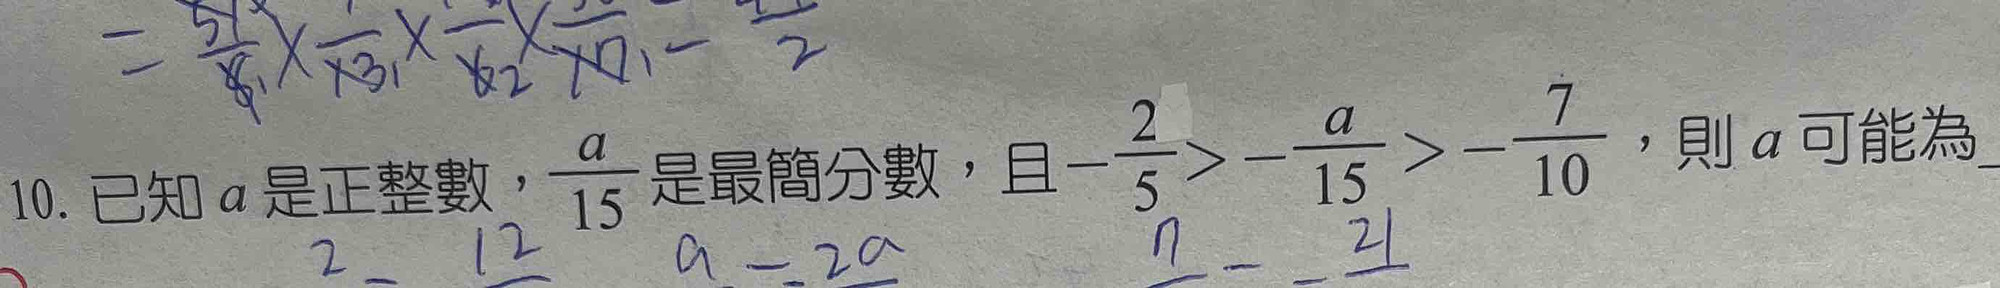 = 51/8₁ × 1/13₁ × /62 × /17₁ = /2
10. 已知 a 是正整數，a/15 是最簡分數，且 -2/5 > -a/15 > -7/10，則 a 可能為_
2 = 12 a = 2a 7 = 21